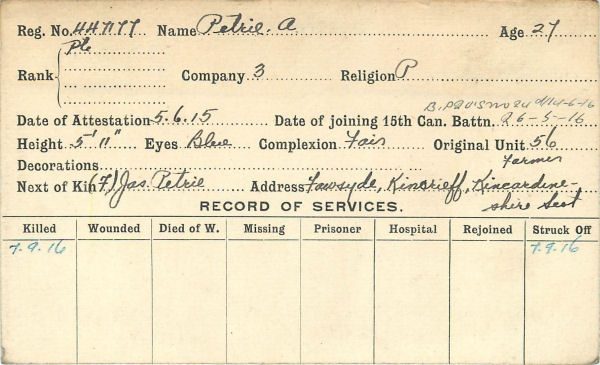 Reg. No. 447177 Name Petrie. A Age 27
Pte
Rank Company 3 Religion P
B.P2015 no 24 d/14-6-16
Date of Attestation 5.6.15 Date of joining 15th Can. Battn. 26-5-16
Height 5' 11" Eyes Blue Complexion Fair Original Unit 56
Decorations Farmer
Next of Kin (F) Jas. Petrie Address Fawsyde, Kinneff, Kincardine-
shire Scot
RECORD OF SERVICES.
Killed Wounded Died of W. Missing Prisoner Hospital Rejoined Struck Off
7.9.16 7.9.16